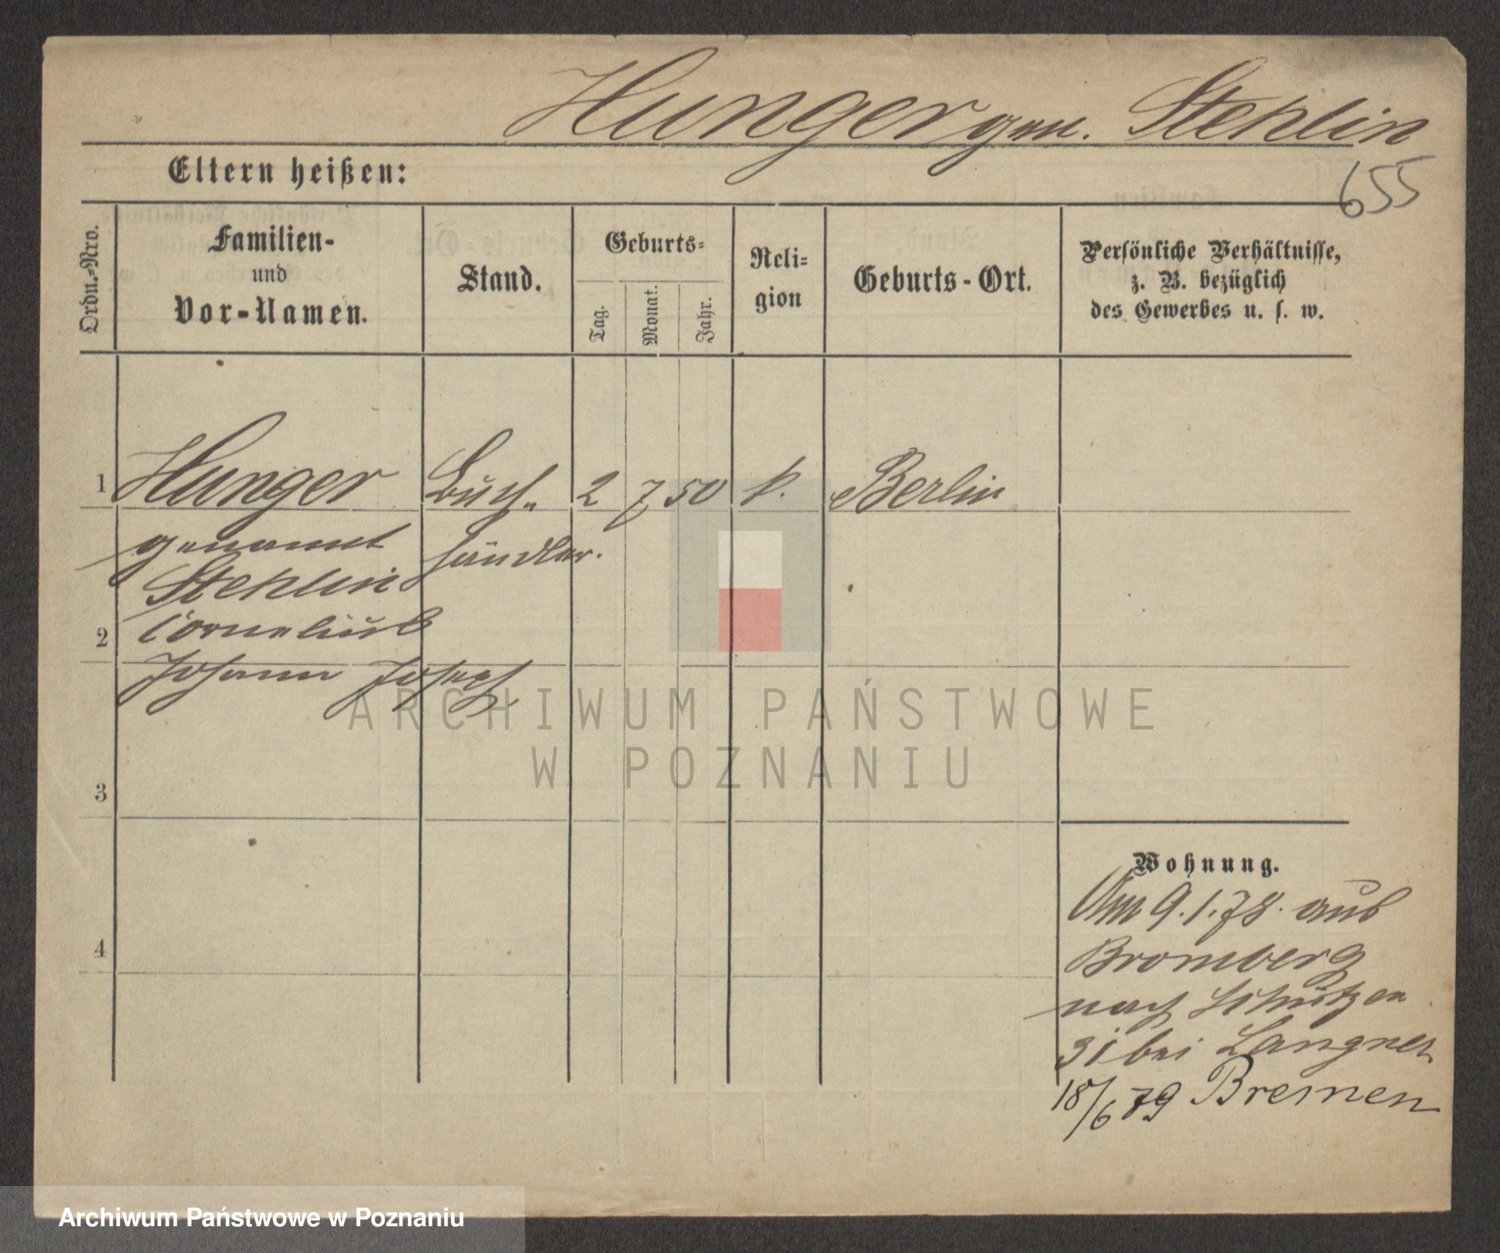 Hunger gen. Stehlin
655
Eltern heißen:
Ordn.-Nro.
Familien-
und
Vor-Namen.
Stand.
Geburts-
Tag.
Monat.
Jahr.
Reli-
gion
Geburts-Ort.
Persönliche Verhältnisse,
z. B. bezüglich
des Gewerbes u. s. w.
1 Hunger Buch- 2 7 50 k. Berlin
genannt händler.
Stehlin
2 Cornelius
Johann Josef
3
4
Wohnung.
Am 9.1.78. aus
Bromberg
nach Schützen
31 bei Langner
18/6 79 Bremen
ARCHIWUM PAŃSTWOWE
W POZNANIU
Archiwum Państwowe w Poznaniu